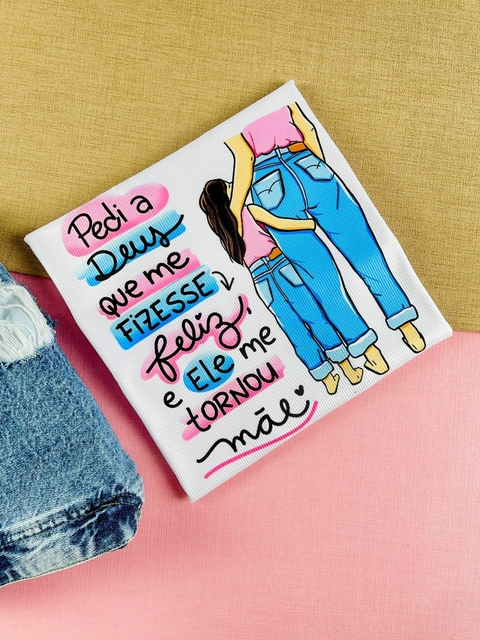 Pedi a
Deus
que me
FIZESSE
feliz,
e ELE me
tORNOU
mãe